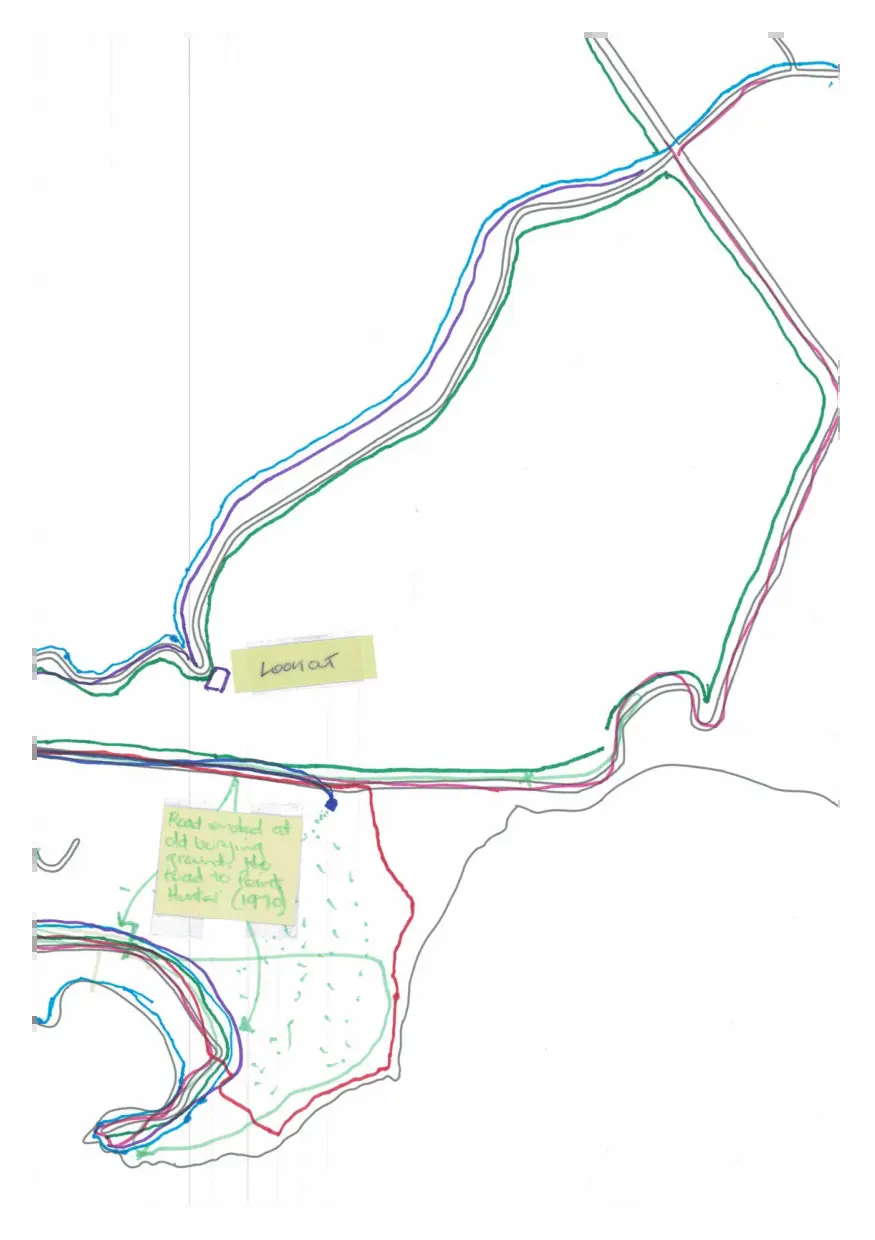 Lookout
Road ended at
old burying
ground. No
road to Point
Hunter (1970)